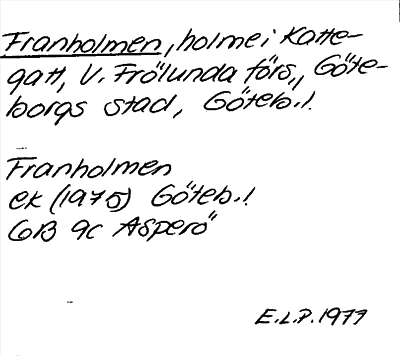 Franholmen, holme i Katte-
gatt, V. Frölunda förs., Göte-
borgs stad, Göteb.l.
Franholmen
ek (1975) Göteb.l.
GB 9c Asperö
E.L.P. 1977